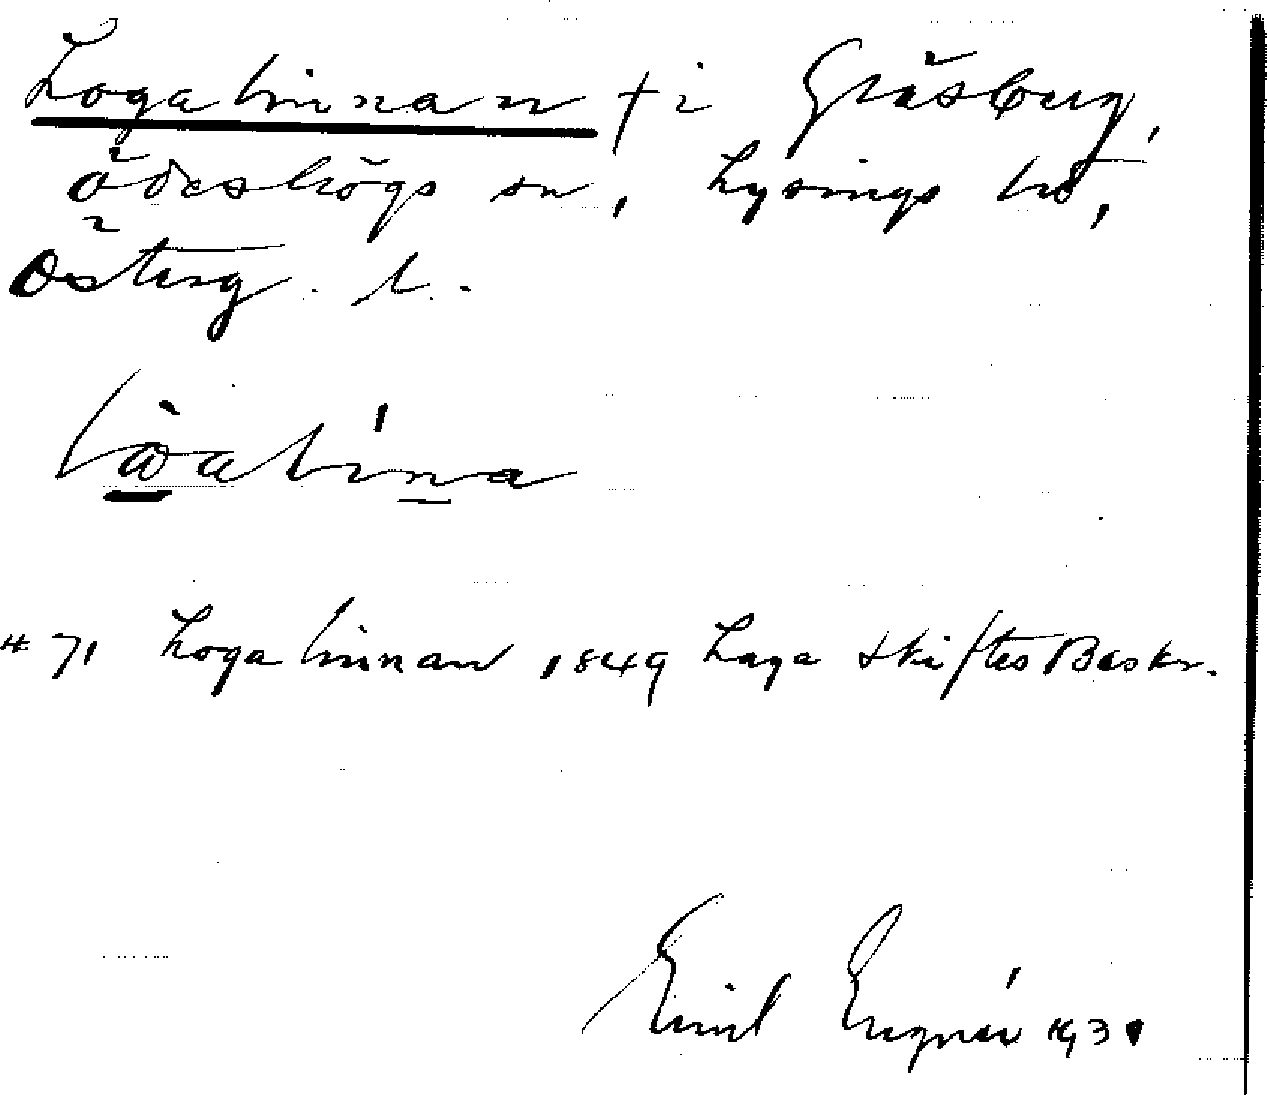 Logahinnan † i Gräsberg,
Ödeshögs sn, Lysings hd,
Österg. l.
# 71 Logahinnan 1849 Laga SkiftesBeskr.
Emil Engnér 193